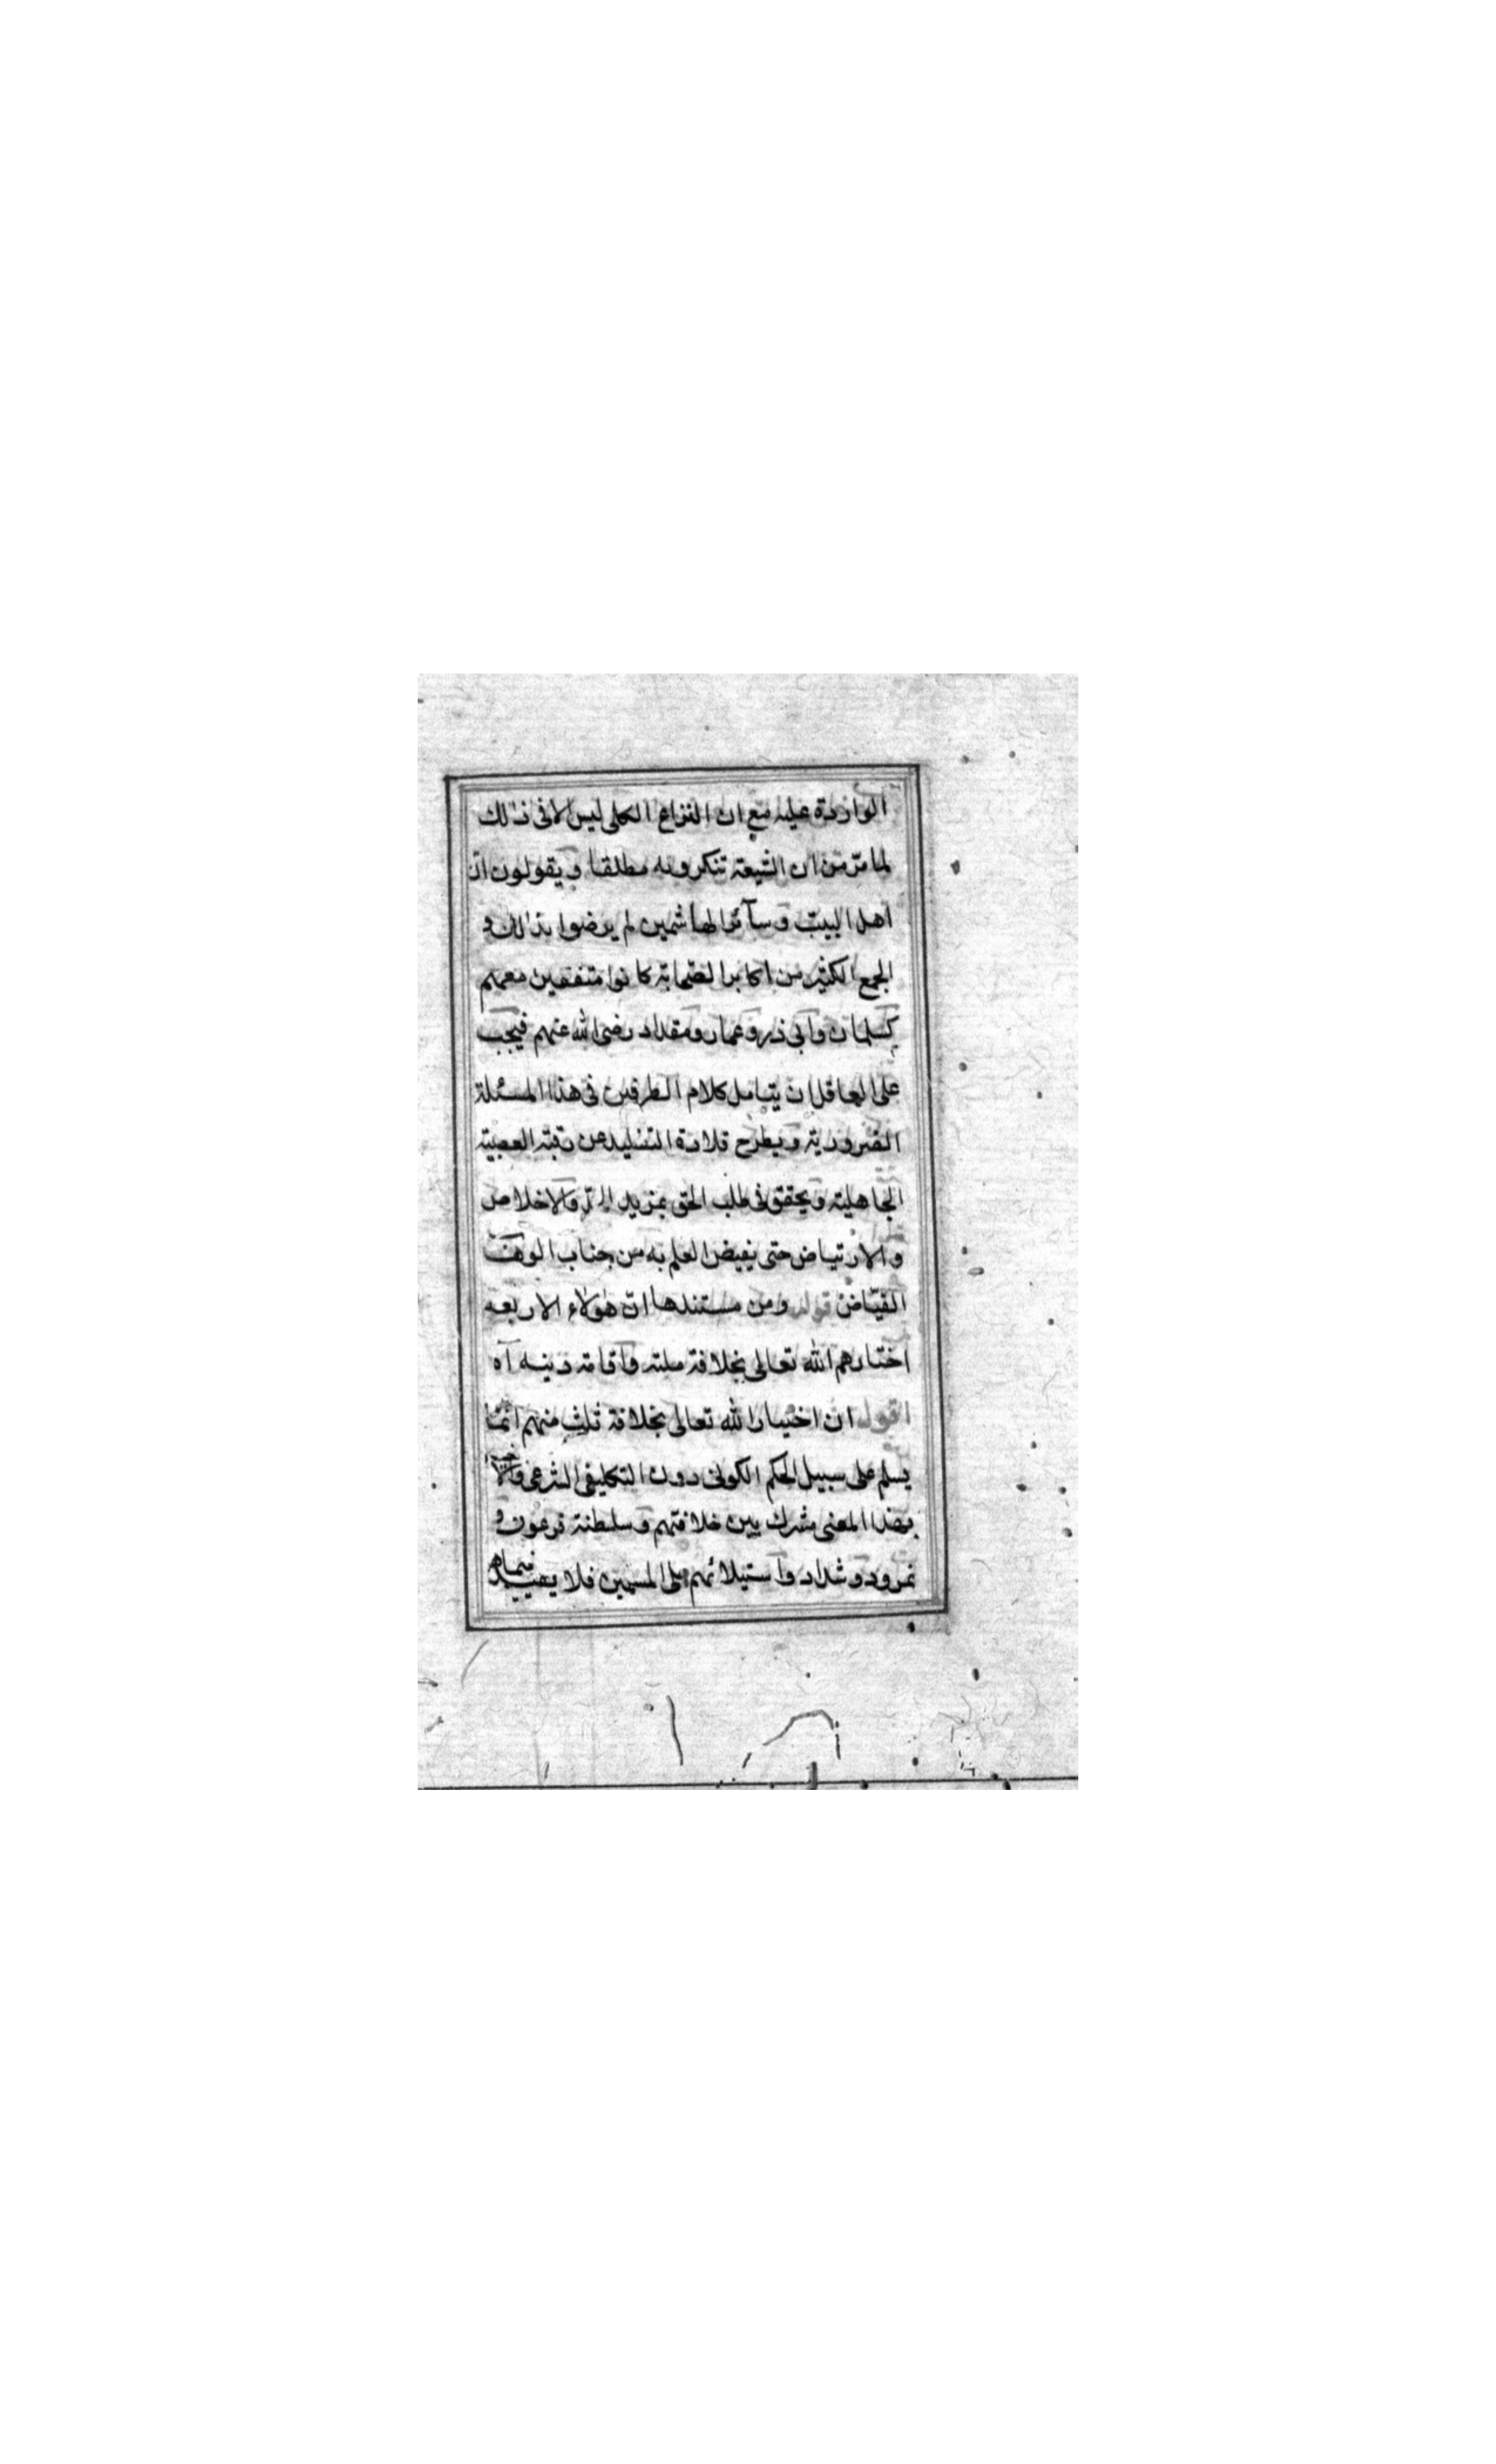 الواردة عليه مع ان النزاع الكلى ليس الا فى ذلك
لما مرّ من ان الشيعة تنكرونه مطلقا و يقولون انّ
اهل البيت و سآئر الهاشمين لم يرضوا بذلك و
الجمع الكثير من اكابر الصّحابة كانوا متفقين معهم
كسلمان و ابى ذر و عمار و مقداد رضى الله عنهم فيجب
على العاقل ان يتامل كلام الطرفين فى هذا المسئلة
الضرورية و يطرح قلادة التقليد عن رقبة العصبية
الجاهلية و يحقق فى طلب الحق بمزيد و الاخلاص
و الارتياض حتى يفيض العلم به من جناب الوهّب
الفيّاض قوله و من مستندها انّ هولاء الاربعه
اختارهم الله تعالى بخلافة ملته و اقامة دينه آه
اقول ان اختيار الله تعالى بخلافة ثلث منهم انّما
يسلم على سبيل الحكم الكونى دون التكليفى الشرعى و
بهذا المعنى مشرك بين خلافتهم و سلطنة فرعون و
نمرود و شداد و استيلائهم على المسلمين فلا يفيد فيما